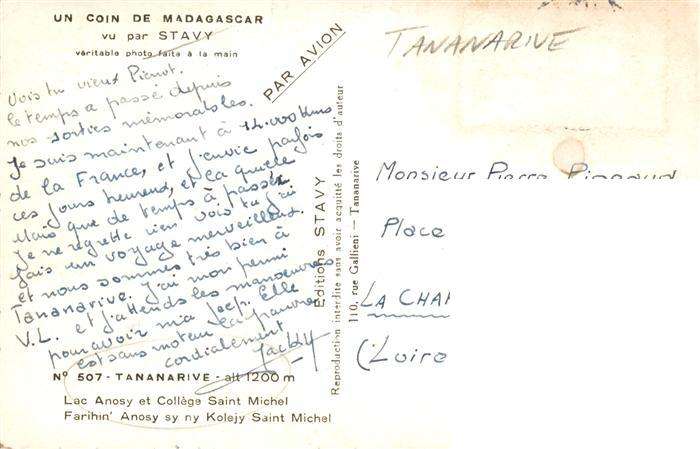 UN COIN DE MADAGASCAR
vu par STAVY
véritable photo faite à la main
PAR AVION
TANANARIVE
Vois tu vieux Pierrot.
le temps a passé depuis
nos sorties mémorables.
Je suis maintenant à 12.000 kms
de la France, et j'envie parfois
ces jours heureux, et ça quille
Mais que de temps à passer
je ne regrette rien vois tu j'ai
fais un voyage merveilleux.
et nous sommes très bien à
Tananarive. J'ai mon permi
V.L. et j'attends les manœuvres
pour avoir ma Jeep. Elle
est sans moteur la pauvre
cordialement
Jacky
Nº 507 - TANANARIVE - alt 1200 m
Lac Anosy et Collège Saint Michel
Farihin' Anosy sy ny Kolejy Saint Michel
Editions STAVY
Reproduction interdite sans avoir acquitté les droits d'auteur
110, rue Galliéni - Tananarive
Monsieur Pierre
Place
LA CHA
(Loire